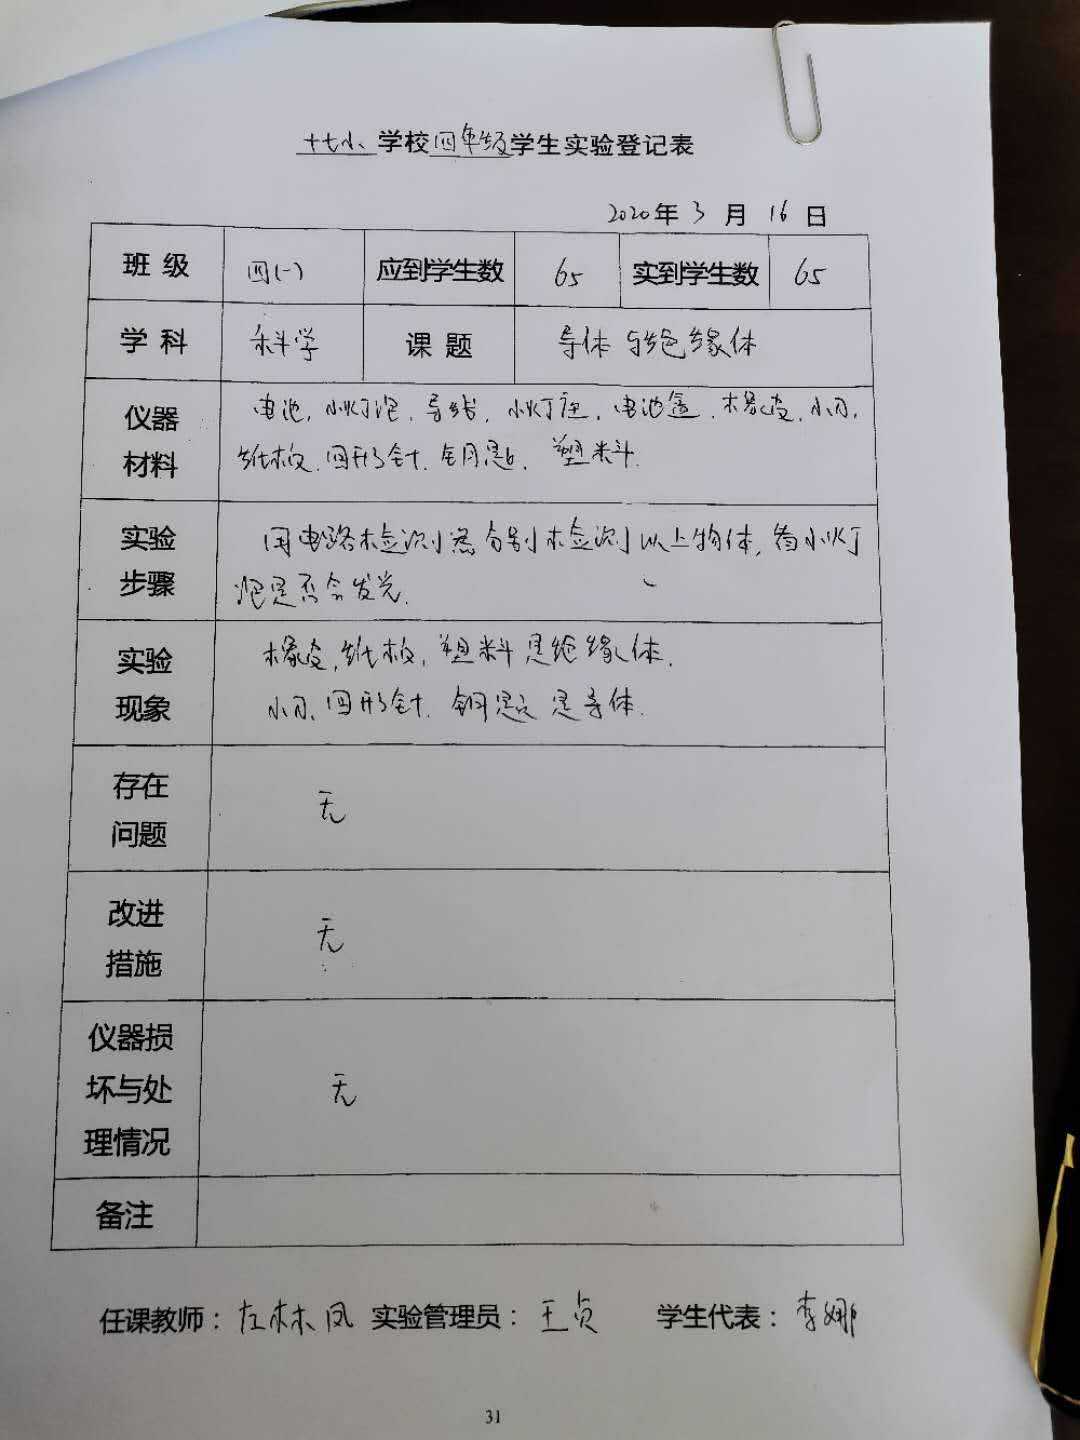 十七小学校四年级学生实验登记表
2020年3月16日
班级 四(一) 应到学生数 65 实到学生数 65
学科 科学 课题 导体与绝缘体
仪器材料 电池,小灯泡,导线,小灯座,电池盒,橡皮,小刀,
纸板,回形针,钥匙,塑料.
实验步骤 用电路检测器分别检测以上物体,看小灯
泡是否会发光.
实验现象 橡皮,纸板,塑料是绝缘体.
小刀,回形针,钥匙是导体.
存在问题 无
改进措施 无
仪器损坏与处理情况 无
备注
任课教师:左林凤 实验管理员:王贞 学生代表:李娜
31